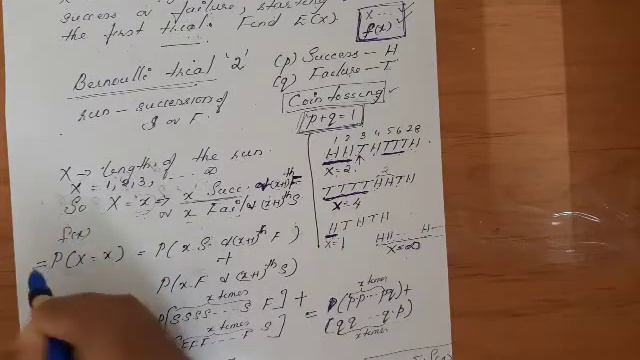 success or failure, starting
the first trial. Find E(X).
X ...
f(x)
Bernoulli trial '2'
run - succession of
S or F.
(p) Success - H
(q) Failure - T
Coin tossing
p+q=1
X → length of the run.
X = 1, 2, 3, ... ∞
So X = x ⇒ x Succ. & (x+1)th F
or x Fail & (x+1)th S
1 2 3 4 5 6 7 8
H H T H T T T H
X=2.
T T T T H H T H
X=4
H T H T H
X=1
HH... H...
X=∞
f(x)
= P(X=x) = P(x S. & (x+1)th F)
+
P(x F & (x+1)th S)
x times
P[SSSS...S F] +
x times
FFF...F S]
x times
= P(p.p...p q) +
(q q ... q.p)
x times